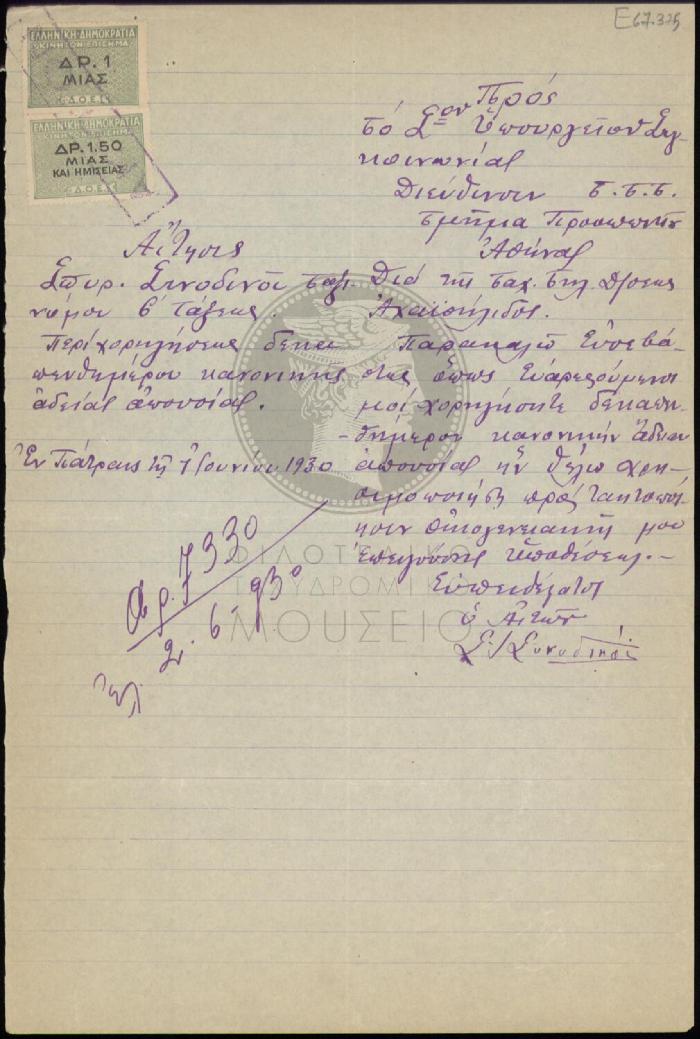 Ε67.325
ΕΛΛΗΝΙΚΗ·ΔΗΜΟΚΡΑΤΙΑ
ΚΙΝΗΤΟΝ ΕΠΙΣΗΜΑ
ΔΡ. 1
ΜΙΑΣ
ΕΛΛΗΝΙΚΗ·ΔΗΜΟΚΡΑΤΙΑ
ΚΙΝΗΤΟΝ ΕΠΙΣΗΜΑ
ΔΡ. 1.50
ΜΙΑΣ
ΚΑΙ ΗΜΙΣΕΙΑΣ
Πρός
τό Σον Ὑπουργεῖον Συγ
κοινωνίας
Διεύθινσιν Τ.Τ.Τ.
τμῆμα Προσωπικοῦ
Ἀθήνας
Αἴτησις
Σπυρ. Συνοδινοῦ ταξι
νόμου β' τάξεως.
Περί χορηγήσεως δεκα
πενθημέρου κανονικῆς
ἀδείας ἀπουσίας.
Ἐν Πάτραις τῇ 1 Ἰουνίου 1930
Διά τῆς ταχ. τηλ. Δ/σεως
Ἀχαϊοήλιδος.
Παρακαλῶ Εὐσεβά
στως ὅπως Εὐαρεστούμενοι
μοί χορηγήσητε δεκαπεν
-θήμερον κανονικήν ἄδειαν
ἀπουσίας ἥν θέλω χρη-
σιμοποιήση πρός τακτοποί
ησιν οἰκογενειακῆς μου
ἐπειγούσης ὑποθέσεως.-
Εὐπειθέστατος
ὁ Αἰτῶν
Σ. Συνοδινός
Αρ. 7330
2-6-930
ΦΙΛΟΤΕΛΙΚΟ
ΤΑΧΥΔΡΟΜΙΚΟ
ΜΟΥΣΕΙΟ